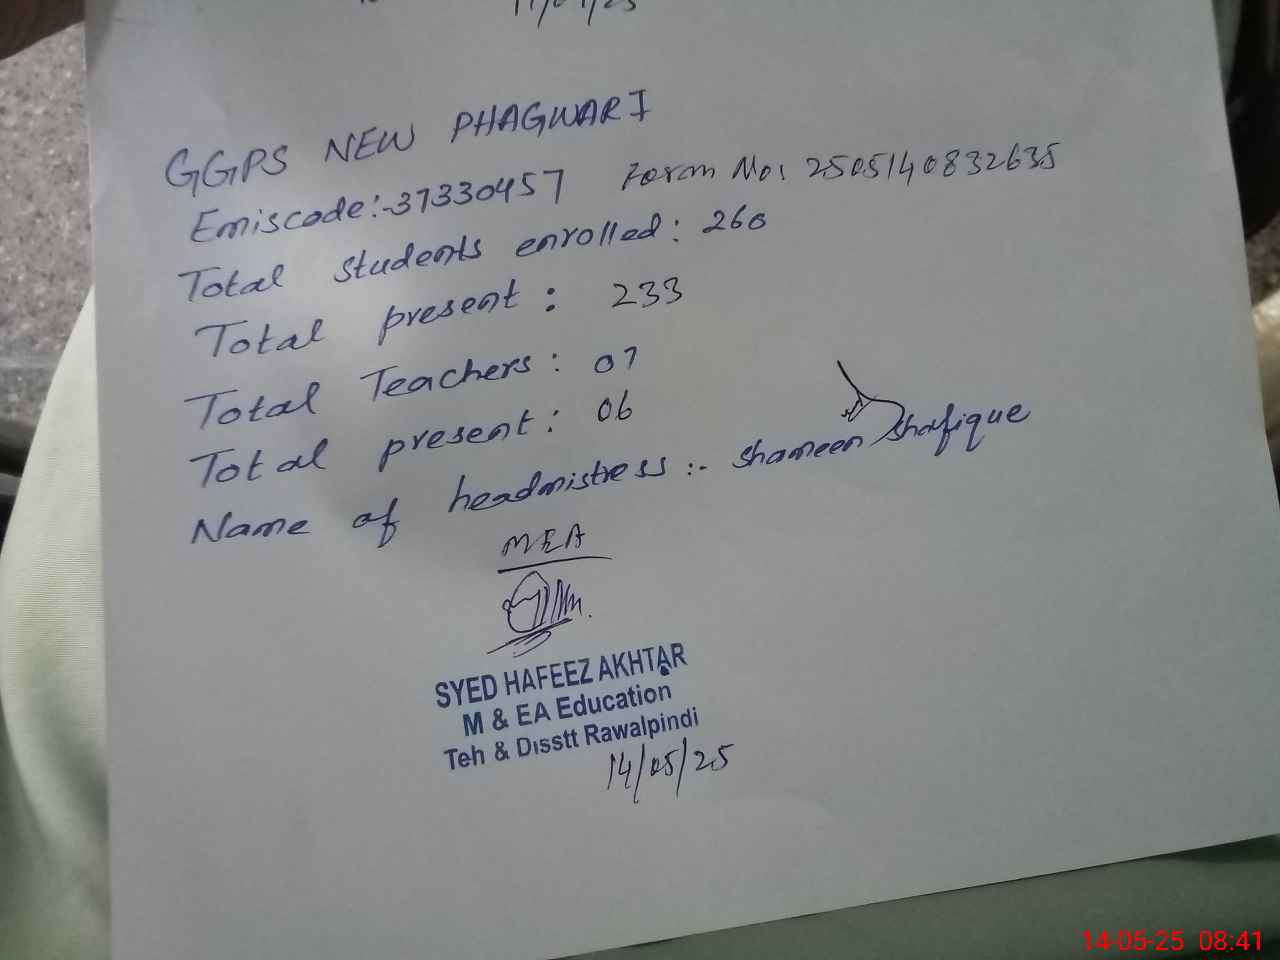 11/04/25
GGPS NEW PHAGWARI
Emiscode:-37330457 Form No: 2505140832635
Total students enrolled: 260
Total present: 233
Total Teachers: 07
Total present: 06
Name of headmistress:- Shameen Shafique
MEA
SYED HAFEEZ AKHTAR
M & EA Education
Teh & Disstt Rawalpindi
14/05/25
14-05-25 08:41